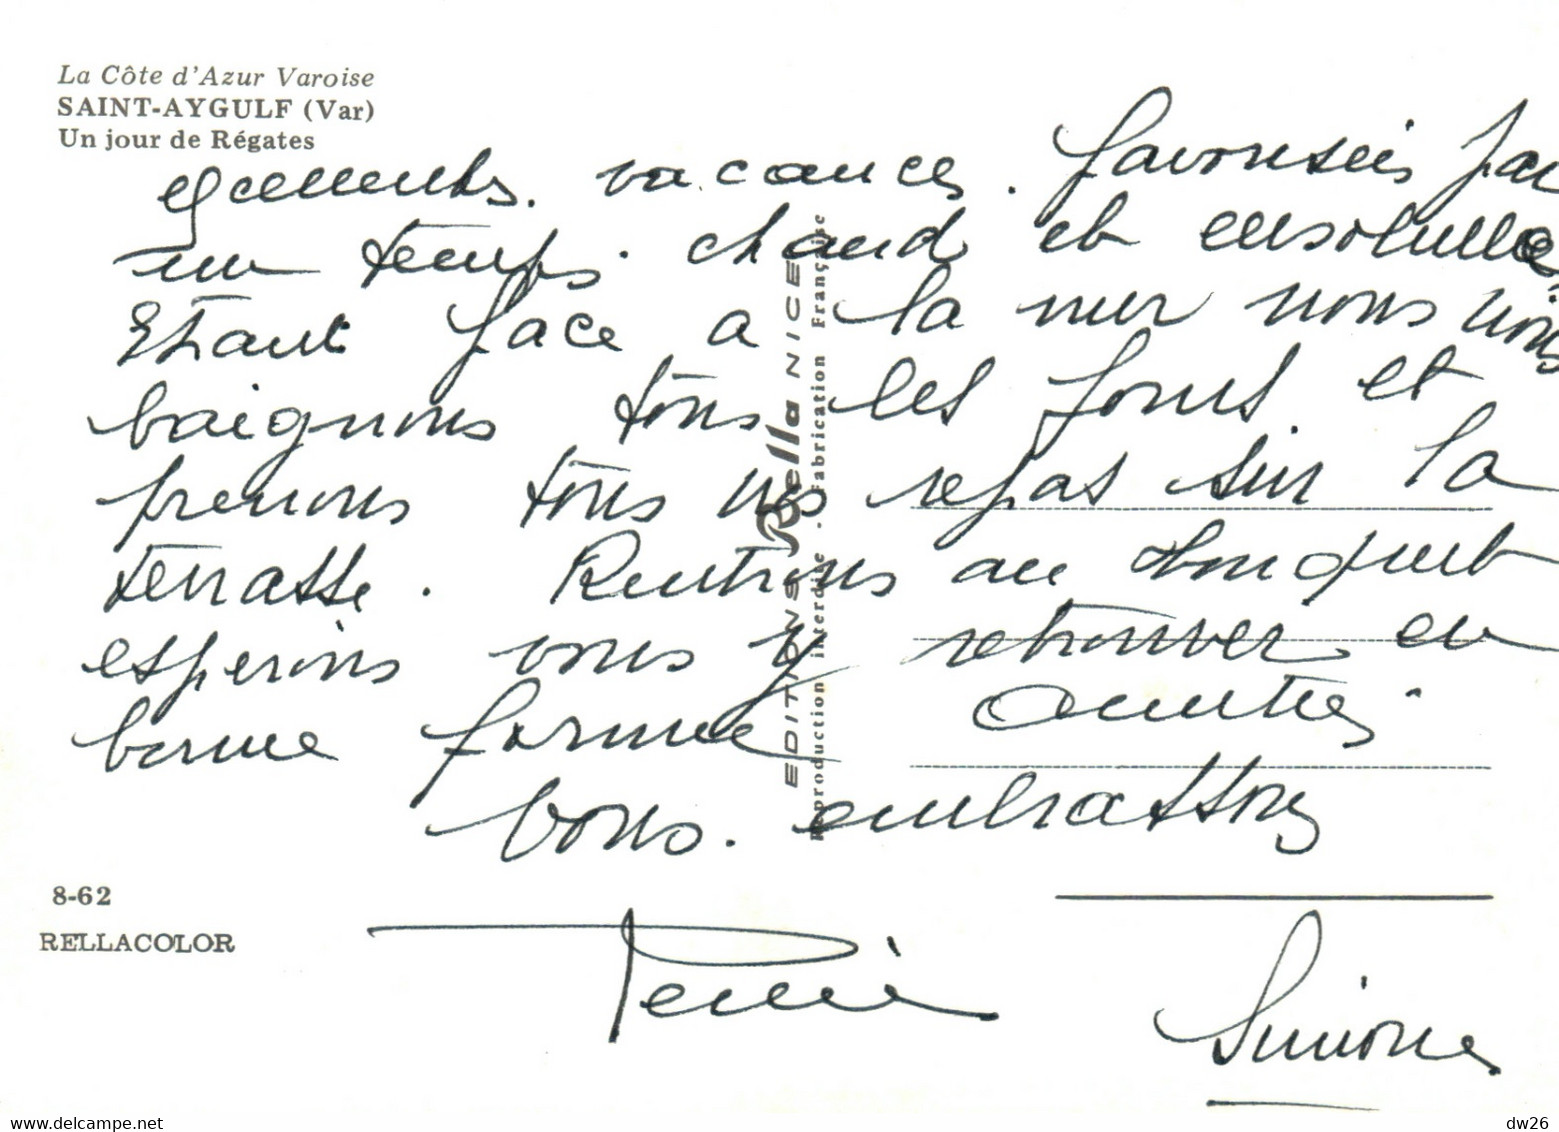 La Côte d'Azur Varoise
SAINT-AYGULF (Var)
Un jour de Régates
excellentes vacances. favorisées par
un temps. chaud et ensoleillé
Etant face a la mer nous nous
baignons tous les jours et
prenons tous nos repas sur la
terrasse. Rentrons au
esperons vous y retrouver en
bonne forme
vous. embrassons
EDITIONS Rella NICE
Reproduction interdite - Fabrication Française
8-62
RELLACOLOR
Simone
delcampe.net
dw26